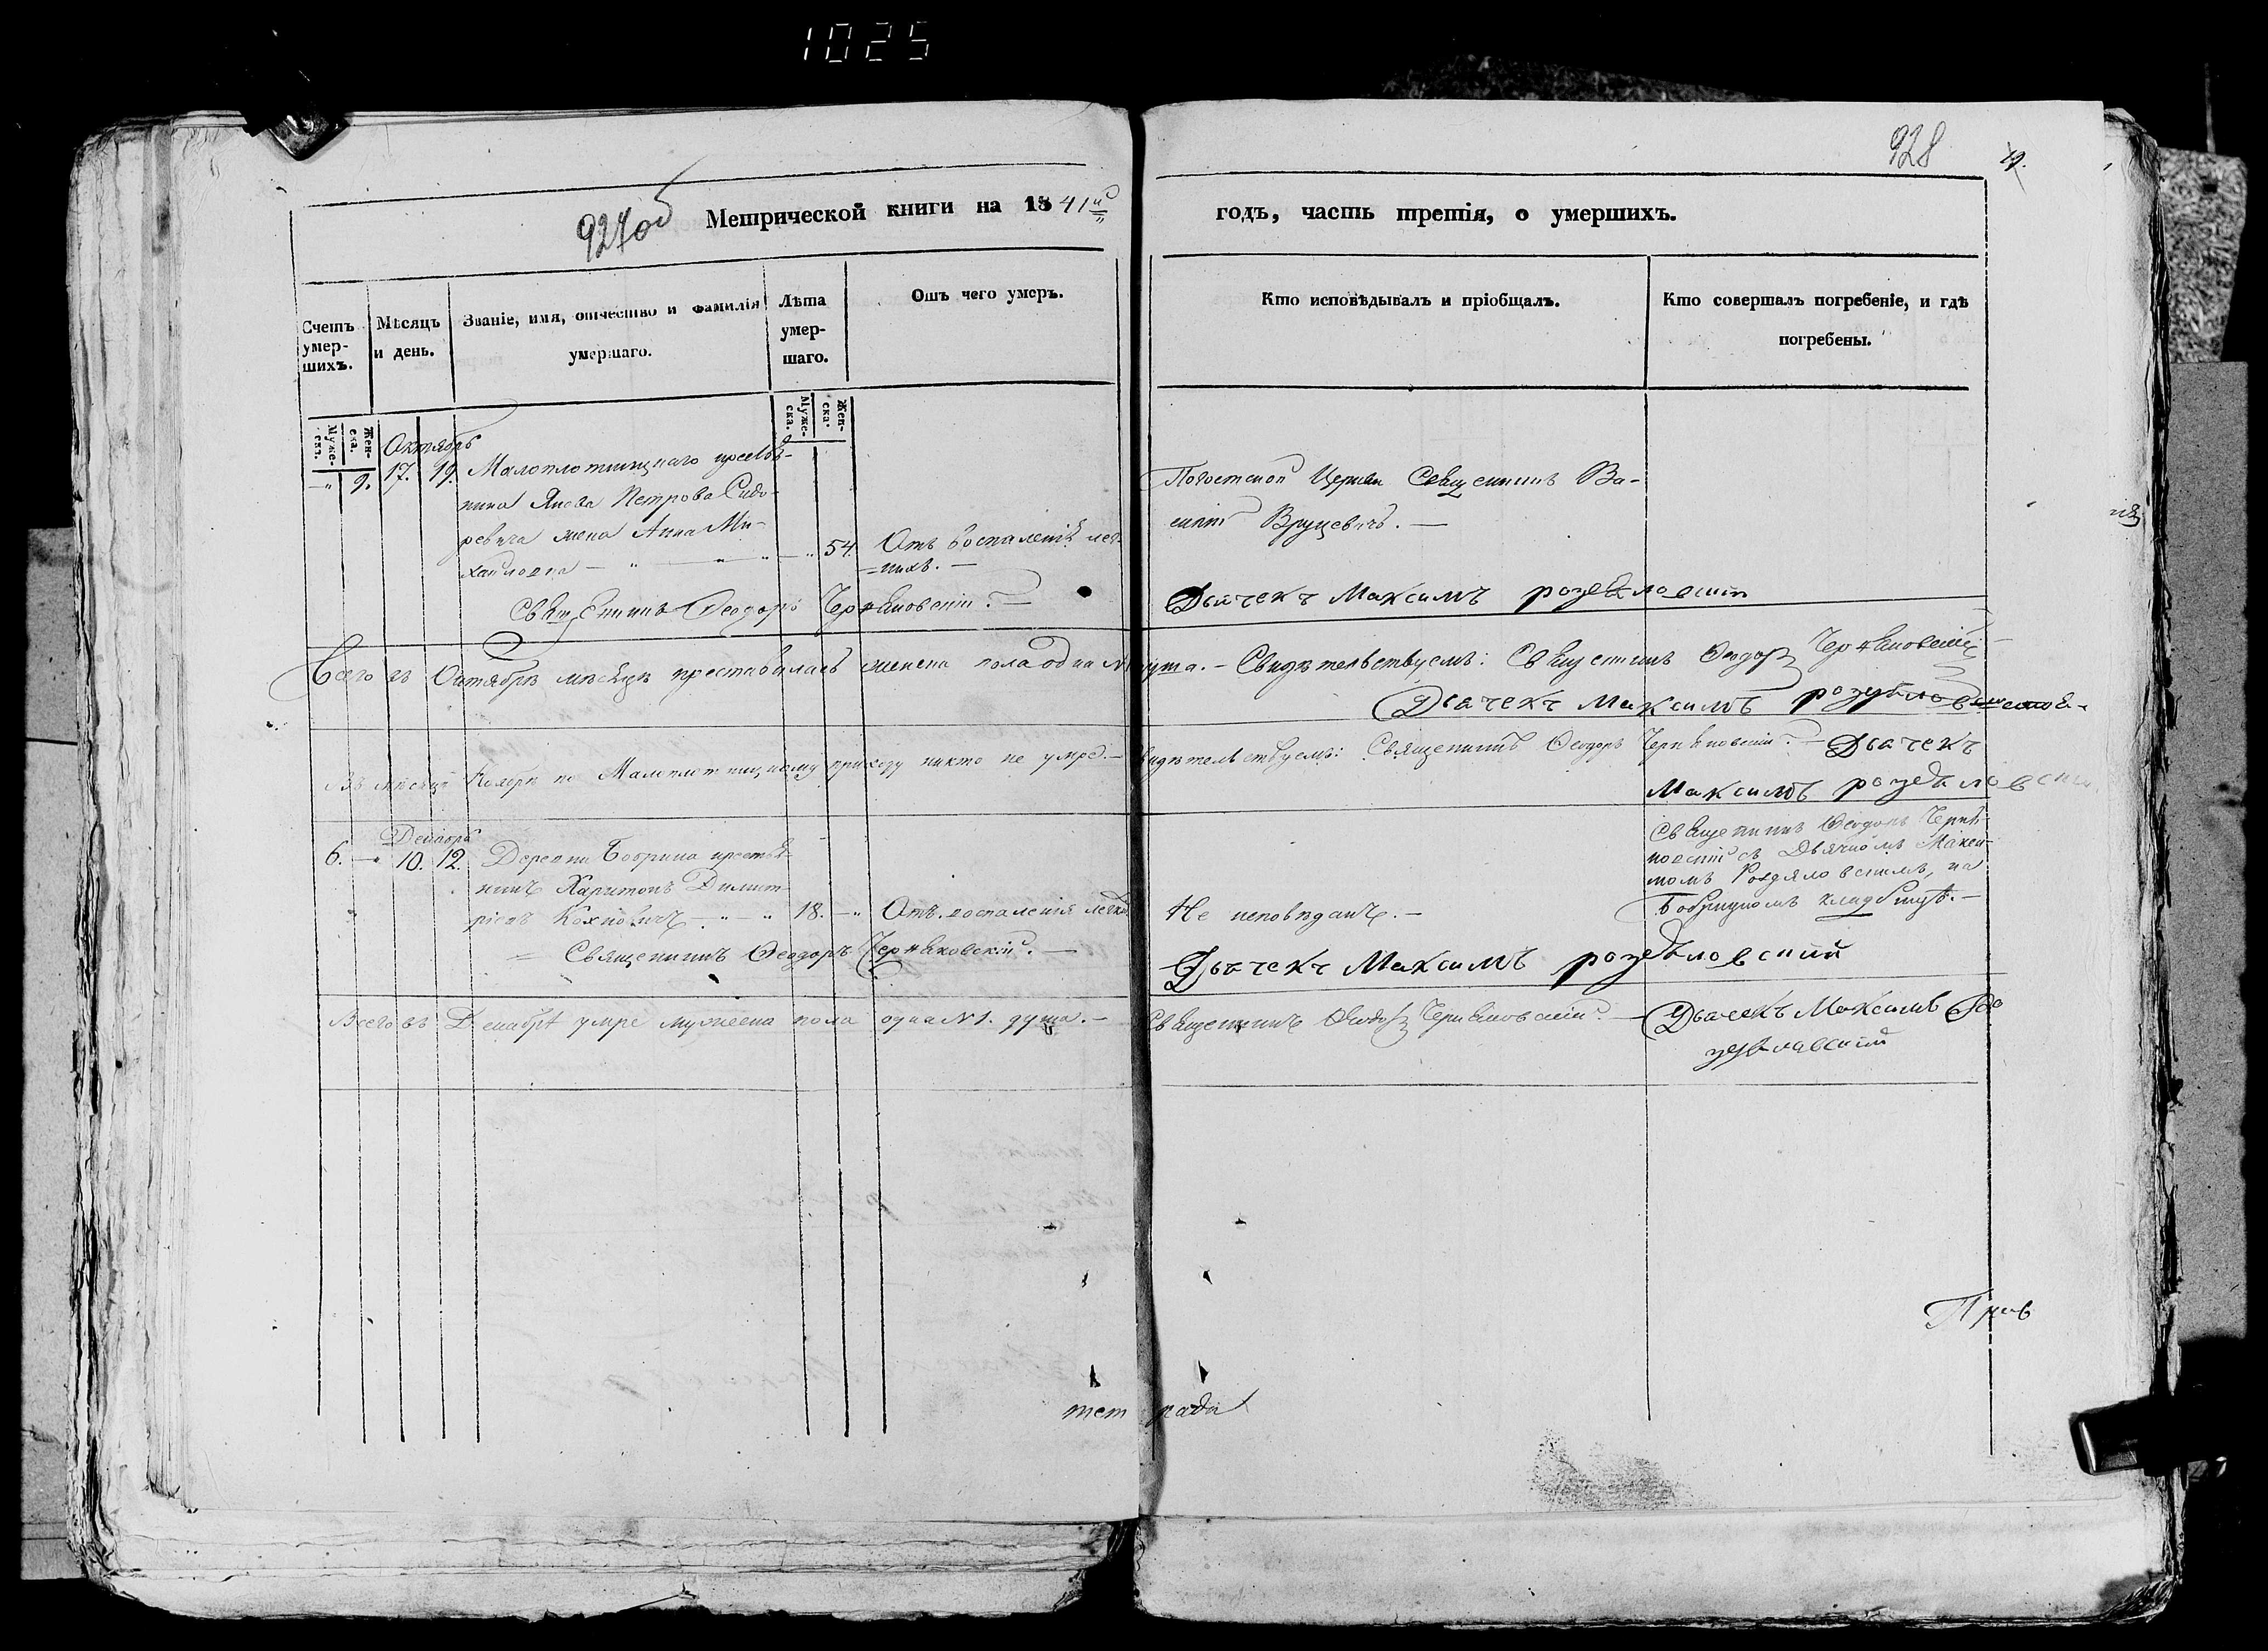 1025
928
19.
927об
Метрической книги на 1841й
годъ, часть третія, о умершихъ.
Счетъ умер-
шихъ.
Мѣсяцъ
и день.
Званіе, имя, отчество и фамилія
умершаго.
Лѣта
умер-
шаго.
Отъ чего умеръ.
Кто исповѣдывалъ и пріобщалъ.
Кто совершалъ погребеніе, и гдѣ
погребены.
Муже-
ска.
Жен-
ска.
Муже-
ска.
Жен-
ска.
Октябрь
9. 17. 19. Малоплотницкаго крестья-
нина Петрова Сидо-
ревича жена Анна Ми-
хайловна 54. Отъ воспаленія лег-
кихъ.
Погостской Церкви Священникъ Ва-
силій Вруцевичъ.
Священникъ Ѳеодоръ Черняковскій.
Дьячекъ Максимъ розділовский
Всего въ Октябрѣ мѣсяцѣ преставилась женска пола одна №1 душа. - Свидѣтельствуемъ: Священникъ Ѳеодоръ Черняковскій
Дьячекъ Максимъ
Въ мѣсяцѣ Ноябрѣ по Малоплотницкому приходу никто не умре. - Свидѣтельствуемъ: Священникъ Ѳеодоръ Черняковскій. - Дьячекъ
Максимъ
Декабрь
6. 10. 12. Деревни Бобрика крестья-
нинъ Харитонъ Димит-
ріевъ Кохновичъ 18. Отъ воспаленія легки
Не исповѣданъ. -
Священникъ Ѳеодоръ Черня-
ковскій съ Дьячкомъ Макси-
момъ Роздяловскимъ, на
Бобрицкомъ кладбищѣ. -
Священникъ Ѳеодоръ Черняковскій.
Дьячекъ Максимъ розділовский
Всего въ Декабрѣ умре мужеска пола одна №1. душа. - Священникъ Ѳеодоръ Черняковскій. - Дьячекъ Максимъ Ро
Прив
тетради